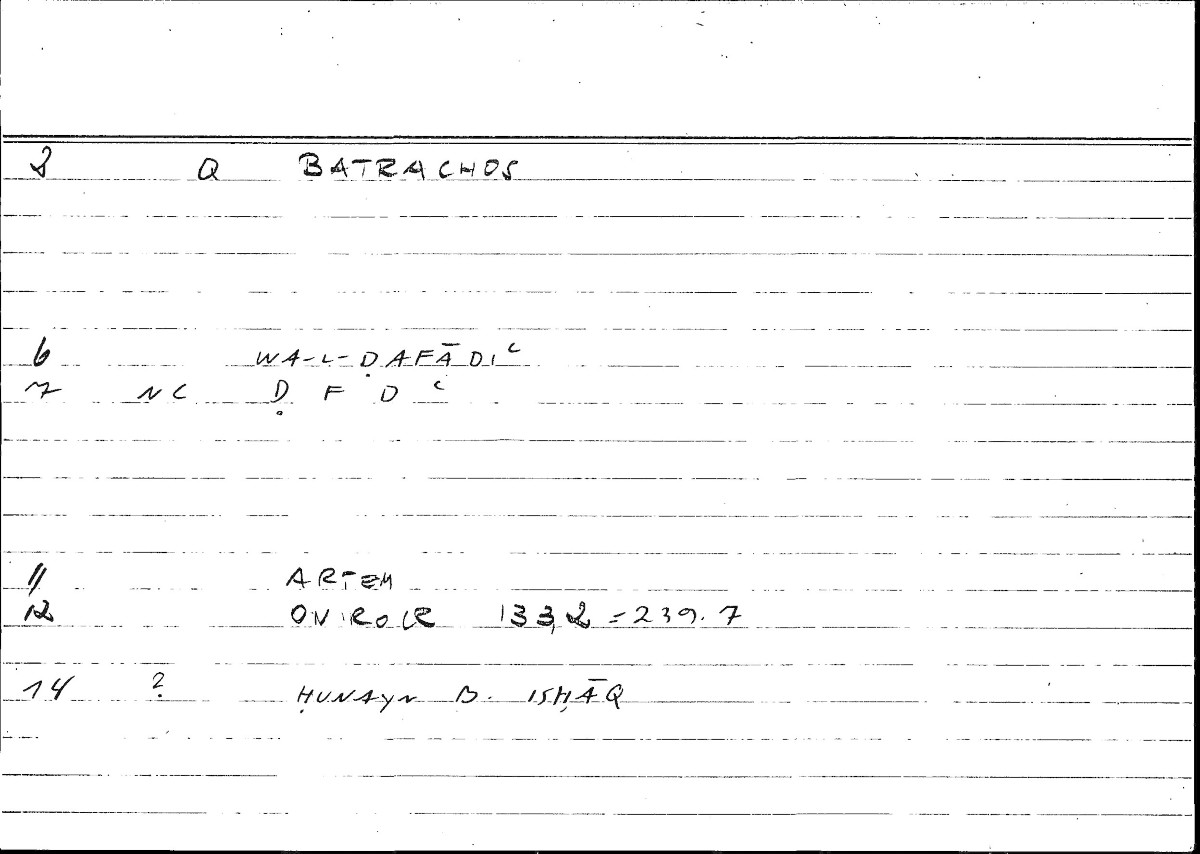 2 Q BATRACHOS
6 WA-L-ḌAFĀDIʿ
7 NC Ḍ F D ʿ
11 ARTEM
12 ONIROCR 133,2 = 239.7
14 ? ḤUNAYN B. ISḤĀQ